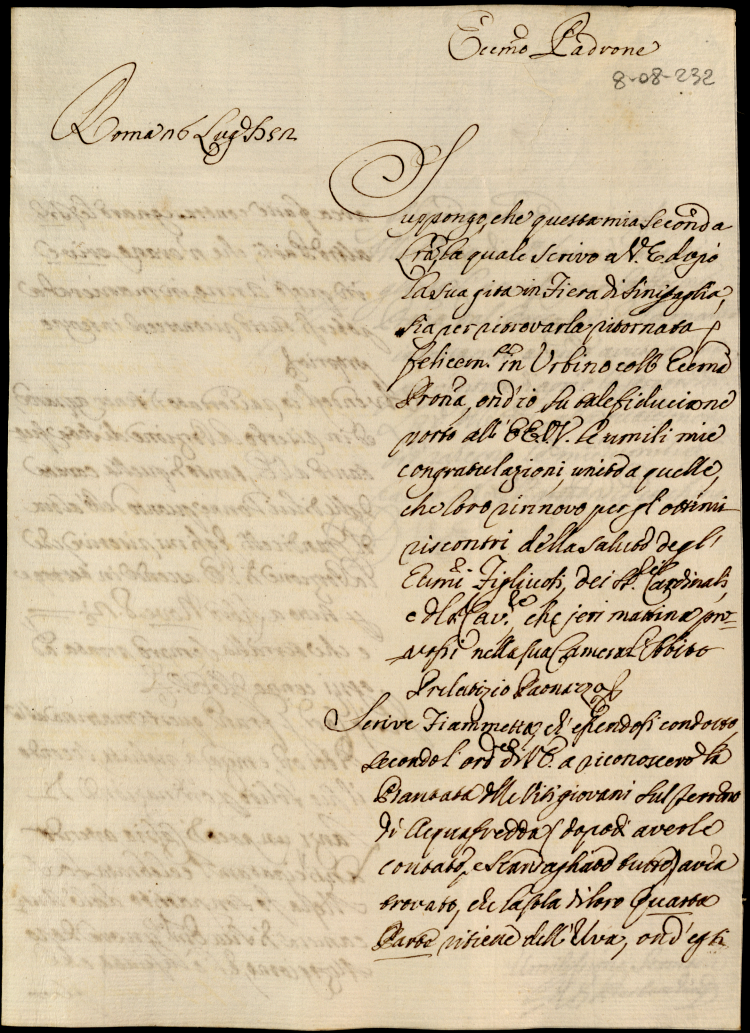 Eccmo Padrone
8-08-232
Roma 26 Lug
Suppongo, che questa mia seconda
Lra, la quale scrivo a V. E. dopo
la sua gita in Fiera di Sinigaglia,
sia per ritrovarla ritornata
felicemte in Urbino coll' Eccma
Prona, ond'io su tale fiducia ne
porto all' EE.VV. le umili mie
congratulazioni, unite a quelle,
che loro rinnovo per gl'ottimi
riscontri della salute degl'
Eccmi Figliuoli, dei Cardinali,
e del Cav.re, che jeri mattina pro-
vossi nella sua Camera l'Abbito
Prelatizio Paonazzo
Scrive Fiammetta, ch'essendosi condotto,
secondo l'ord.e di V. E. a riconoscere la
Piantata delle Viti giovani sul terreno
di Acquafredda, dopo d'averle
contate, e scandagliate tutte, avea
trovato, che la sola di loro Quarta
Parte ritiene dell'Uva, ond'egli